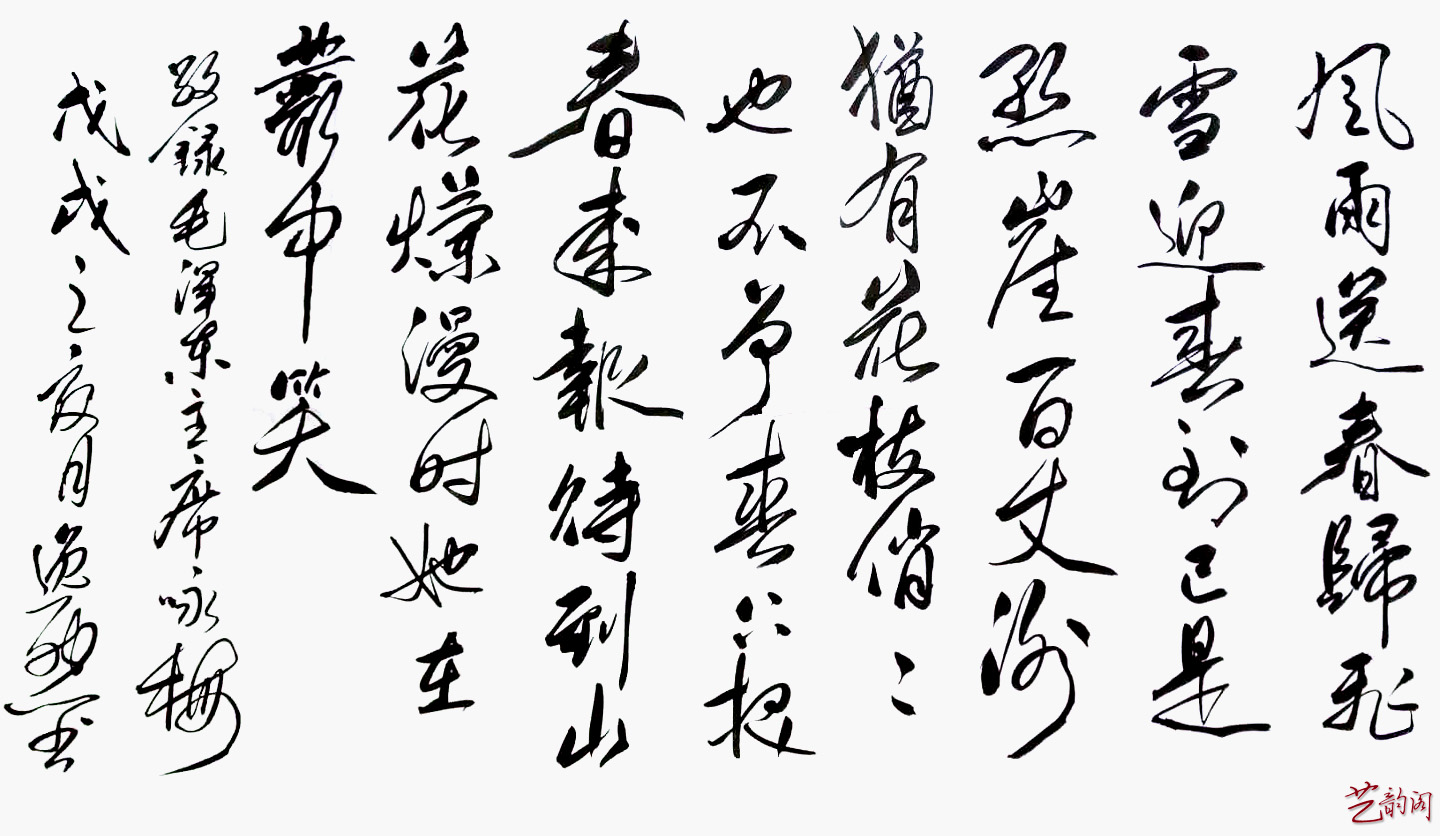 風雨送春歸飛
雪迎春到已是
悬崖百丈冰
猶有花枝俏〻
也不争春只把
春来報待到山
花爛漫时她在
叢中笑
敬録毛澤東主席咏梅
戊戌之夏月逸
艺韵阁